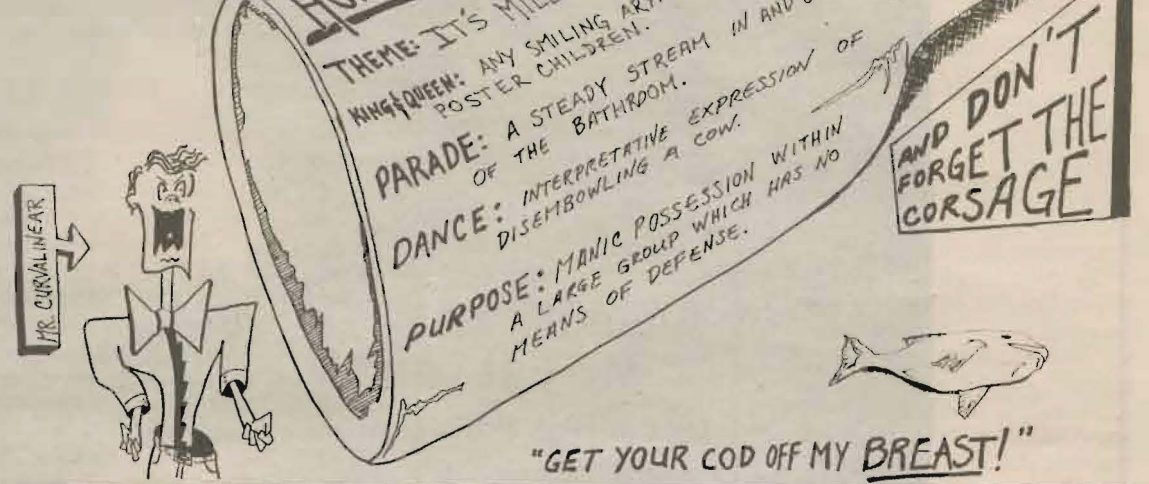 THEME: IT'S
KING & QUEEN: ANY SMILING
POSTER CHILDREN.
PARADE: A STEADY STREAM IN AND
OF THE BATHROOM.
DANCE: INTERPRETATIVE EXPRESSION OF
DISEMBOWLING A COW.
PURPOSE: MANIC POSSESSION WITHIN
A LARGE GROUP WHICH HAS NO
MEANS OF DEFENSE.
AND DON'T
FORGET THE
CORSAGE
MR. CURVALINEAR
"GET YOUR COD OFF MY BREAST!"